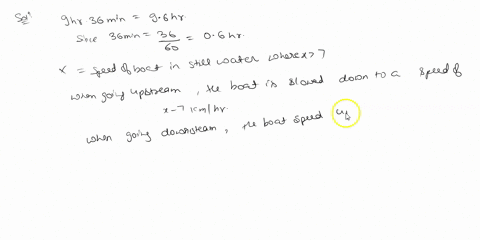 Solⁿ 9hr 36min = 9.6hr
Since 36min = 36/60 = 0.6hr
x = speed of boat in still water where x > 7
when going upstream, the boat is slowed down to a speed of
x-7 km/hr.
when going downstream, the boat speed up